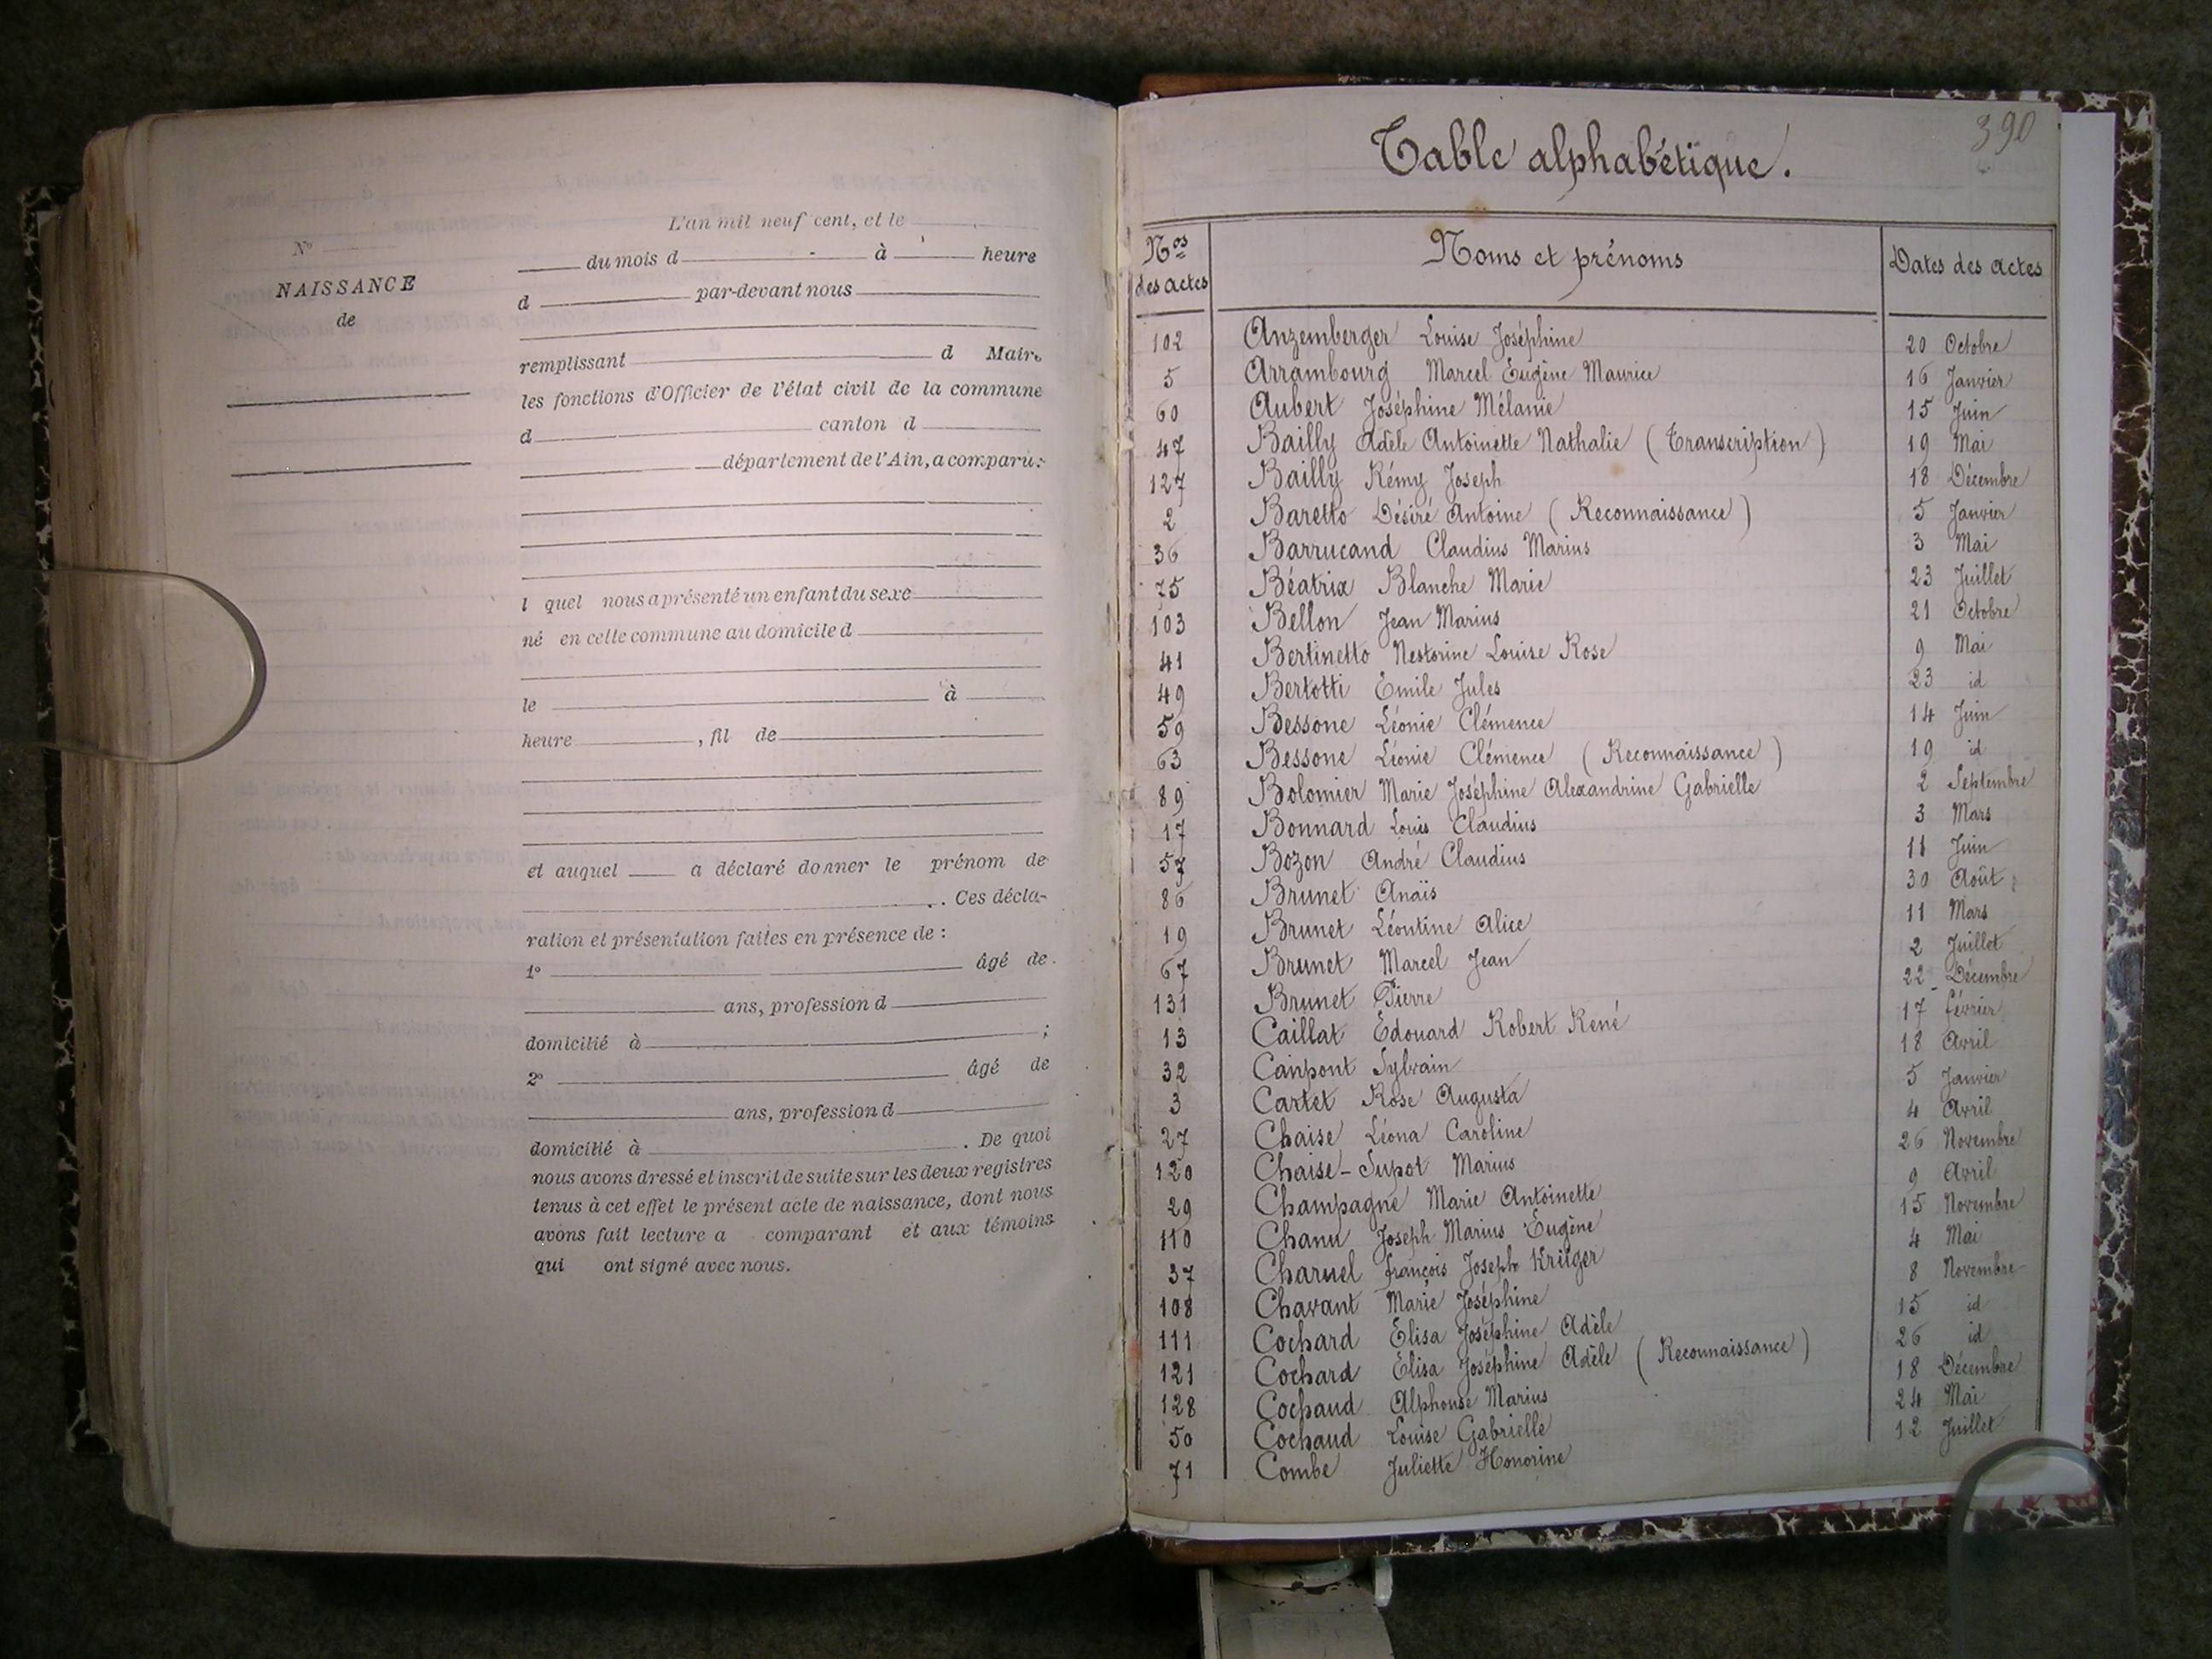 L'an mil neuf cent, et le
N°
du mois d à heure
NAISSANCE
d par-devant nous
de
remplissant d Maire
les fonctions d'Officier de l'état civil de la commune
d canton d
département de l'Ain, a comparu:
l quel nous a présenté un enfant du sexe
né en cette commune au domicile d
le à
heure , fil de
et auquel a déclaré donner le prénom de
. Ces décla-
ration et présentation faites en présence de :
1° âgé de
ans, profession d
domicilié à ;
2° âgé de
ans, profession d
domicilié à . De quoi
nous avons dressé et inscrit de suite sur les deux registres
tenus à cet effet le présent acte de naissance, dont nous
avons fait lecture a comparant et aux témoins
qui ont signé avec nous.
390
Table alphabétique.
Nos des actes Noms et prénoms Dates des actes
102 Anzemberger Louise Joséphine 20 Octobre
5 Arrambourg Marcel Eugène Maurice 16 Janvier
60 Aubert Joséphine Mélanie 15 Juin
47 Bailly Adèle Antoinette Nathalie (Transcription) 19 Mai
127 Bailly Rémy Joseph 18 Décembre
2 Baretto Désiré Antoine (Reconnaissance) 5 Janvier
36 Barrucand Claudius Marius 3 Mai
75 Béatrix Blanche Marie 23 Juillet
103 Bellon Jean Marius 21 Octobre
41 Bertinetto Nestorine Louise Rose 9 Mai
49 Bertotti Emile Jules 23 id
59 Bessone Léonie Clémence 14 Juin
63 Bessone Léonie Clémence (Reconnaissance) 19 id
89 Bolomier Marie Joséphine Alexandrine Gabrielle 2 Septembre
17 Bonnard Louis Claudius 3 Mars
57 Bozon André Claudius 11 Juin
86 Brunet Anaïs 30 Août
19 Brunet Léontine Alice 11 Mars
67 Brunet Marcel Jean 2 Juillet
131 Brunet Pierre 22 Décembre
13 Caillat Edouard Robert René 17 février
32 Canpont Sylvain 18 Avril
3 Cartet Rose Augusta 5 Janvier
27 Chaise Léona Caroline 4 Avril
120 Chaise-Supot Marius 26 Novembre
29 Champagne Marie Antoinette 9 Avril
110 Chanu Joseph Marius Eugène 15 Novembre
37 Charuel françois Joseph Krüger 4 Mai
108 Chavant Marie Joséphine 8 Novembre
111 Cochard Elisa Joséphine Adèle 15 id
121 Cochard Elisa Joséphine Adèle (Reconnaissance) 26 id
128 Cochaud Alphonse Marius 18 Décembre
50 Cochaud Louise Gabrielle 24 Mai
71 Combe Juliette Honorine 12 Juillet